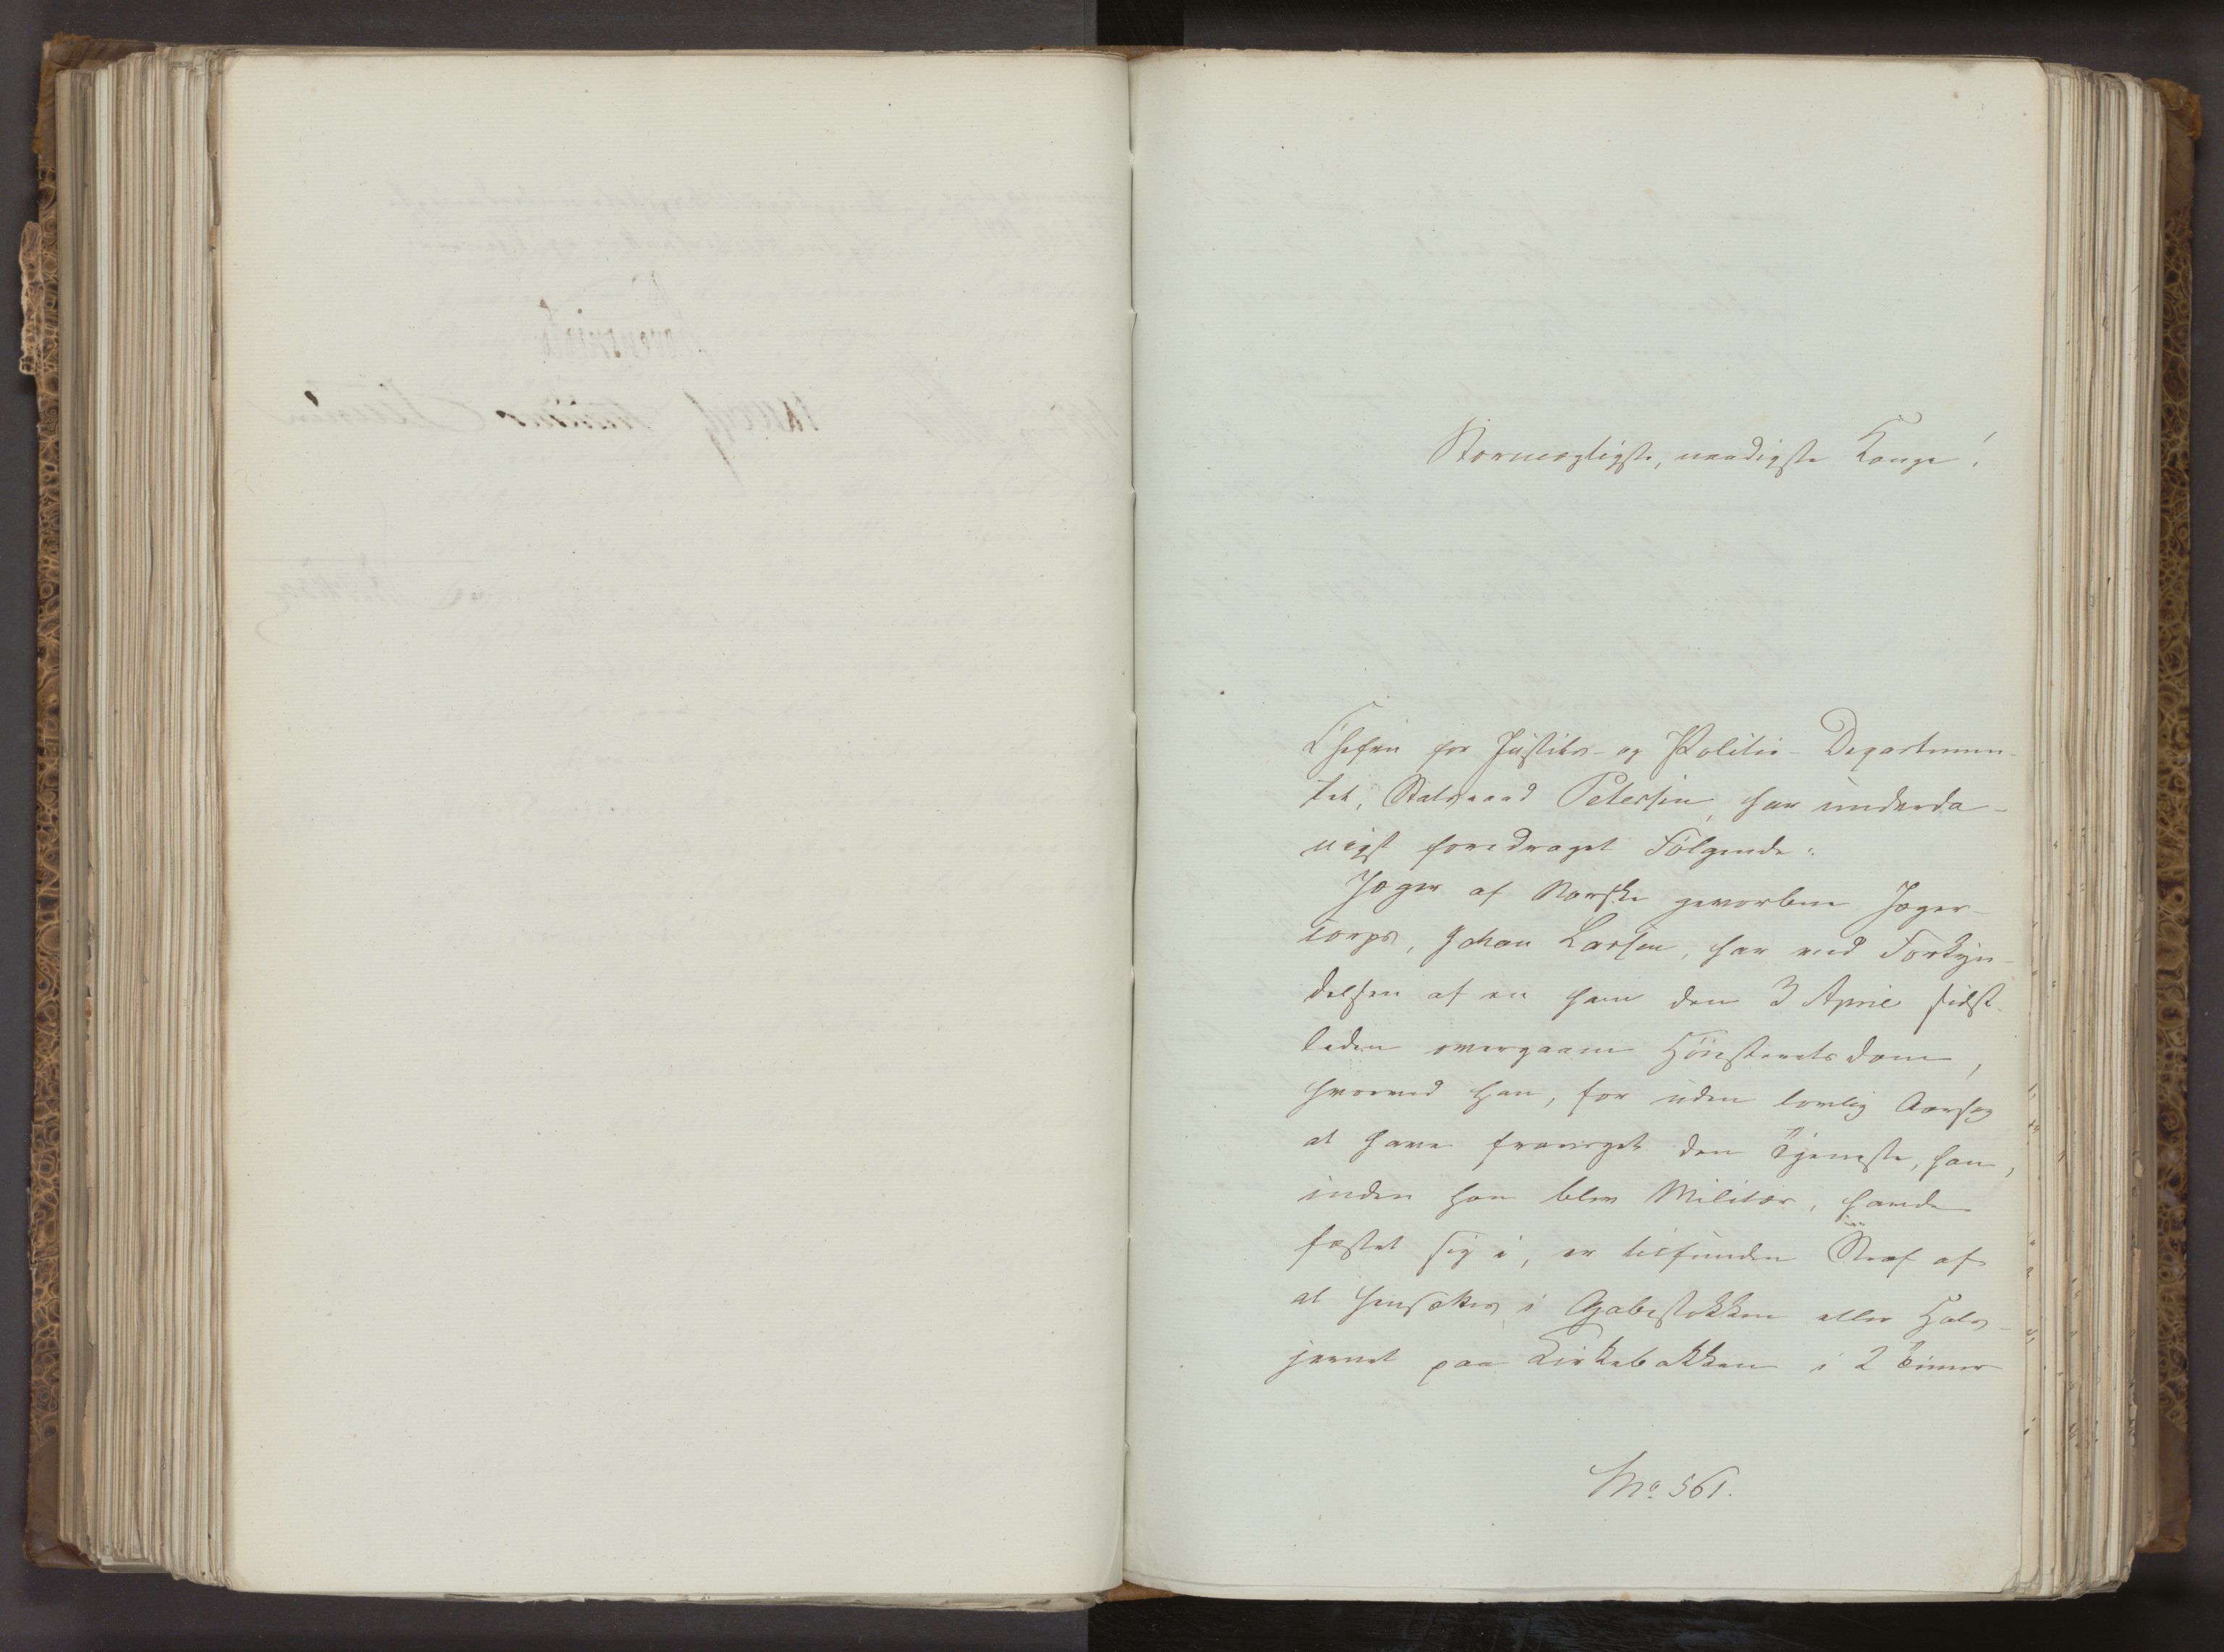 Stormægtigste, naadigste Konge!
Chefen for Justits- og Politie-Departemen-
tet, Statsraad Petersen, har underda-
nigst foredraget Følgende:
Jæger af Norske gevorbne Jæger-
corps, Johan Larsen, har ved Forkyn-
delsen af en ham den 3 April sidst-
leden overgaaen Høiesteretsdom,
hvorved han, for uden lovlig Aarsag
at have fraveget den Tjeneste, han,
inden han blev Militær, havde
fæstet sig i, er tilfunden Straf af
at hensættes i Gabestokken eller Hals-
jernet paa Kirkebakken i 2 Timer
No. 561.